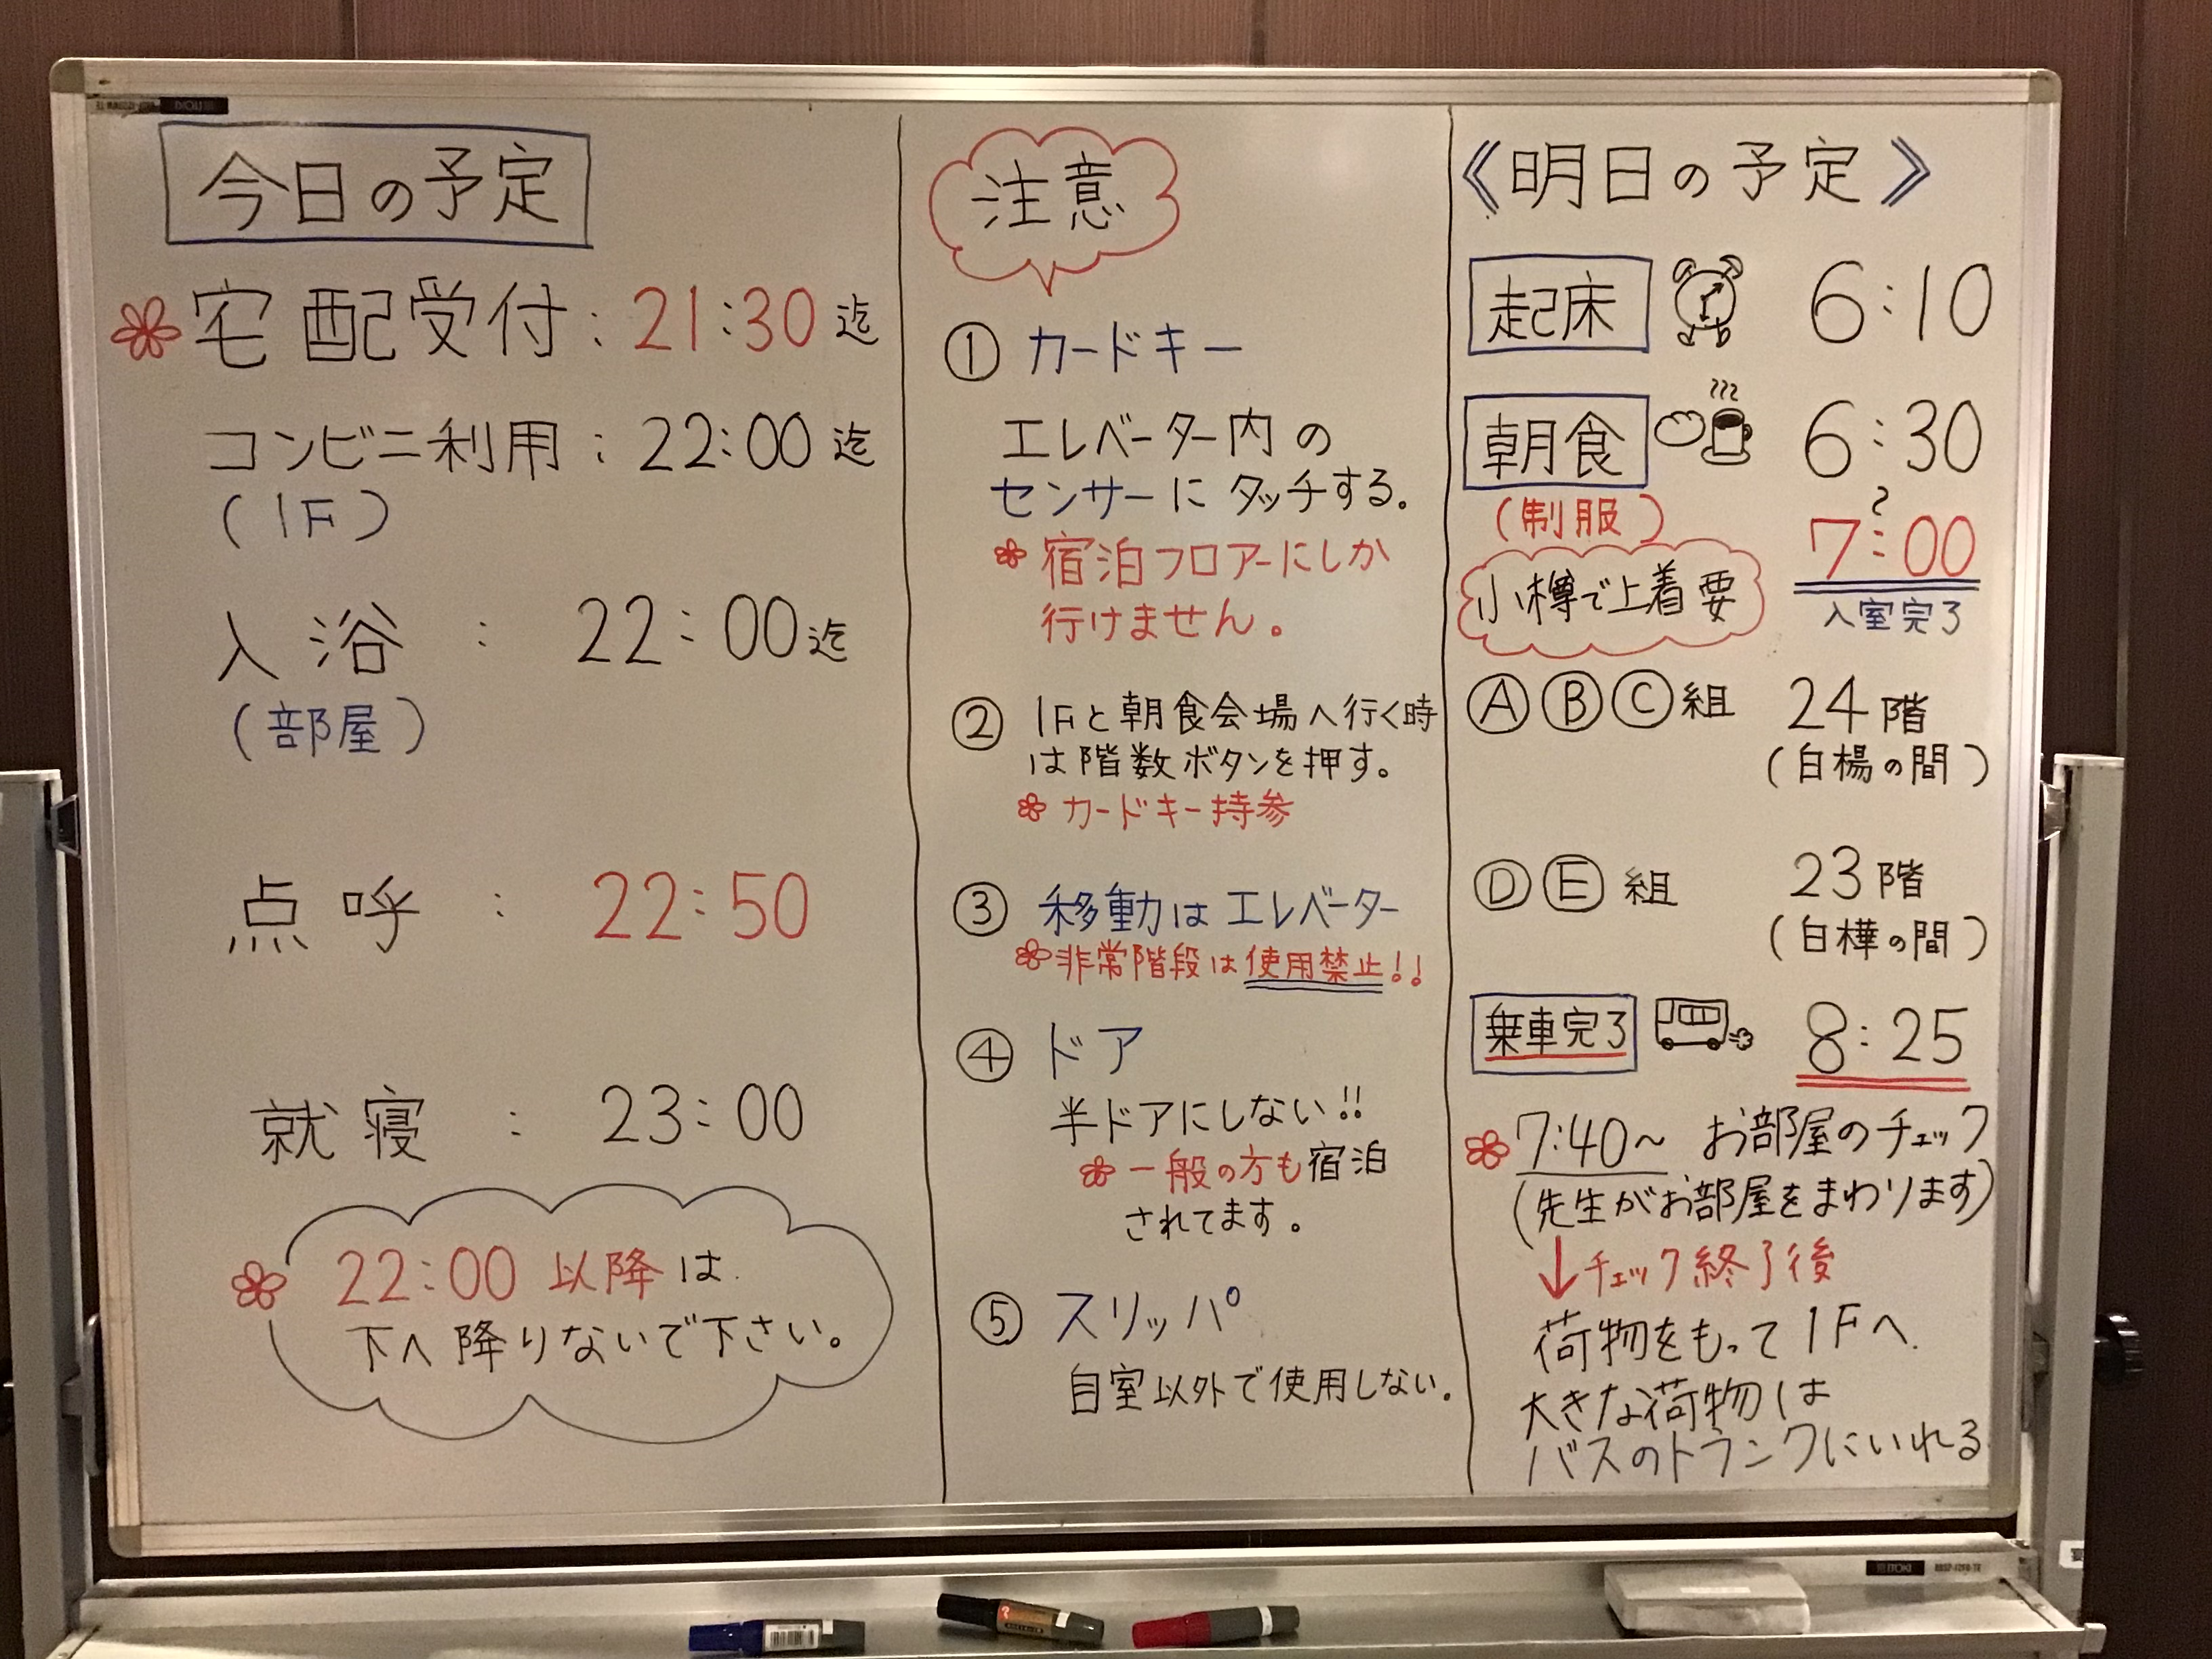 今日の予定
宅配受付:21:30迄
コンビニ利用:22:00迄
(1F)
入浴:22:00迄
(部屋)
点呼:22:50
就寝:23:00
22:00以降は
下へ降りないで下さい。
注意
① カードキー
エレベーター内の
センサーにタッチする。
宿泊フロアーにしか
行けません。
② 1Fと朝食会場へ行く時
は階数ボタンを押す。
カードキー持参
③ 移動はエレベーター
非常階段は使用禁止!!
④ ドア
半ドアにしない!!
一般の方も宿泊
されてます。
⑤ スリッパ
自室以外で使用しない。
《明日の予定》
起床 6:10
朝食 6:30
(制服) 〜 7:00
小樽で上着要 入室完了
ⒶⒷⒸ組 24階
(白楊の間)
ⒹⒺ組 23階
(白樺の間)
乗車完了 8:25
7:40〜 お部屋のチェック
(先生がお部屋をまわります)
↓チェック終了後
荷物をもって1Fへ.
大きな荷物は
バスのトランクにいれる
ITOKI